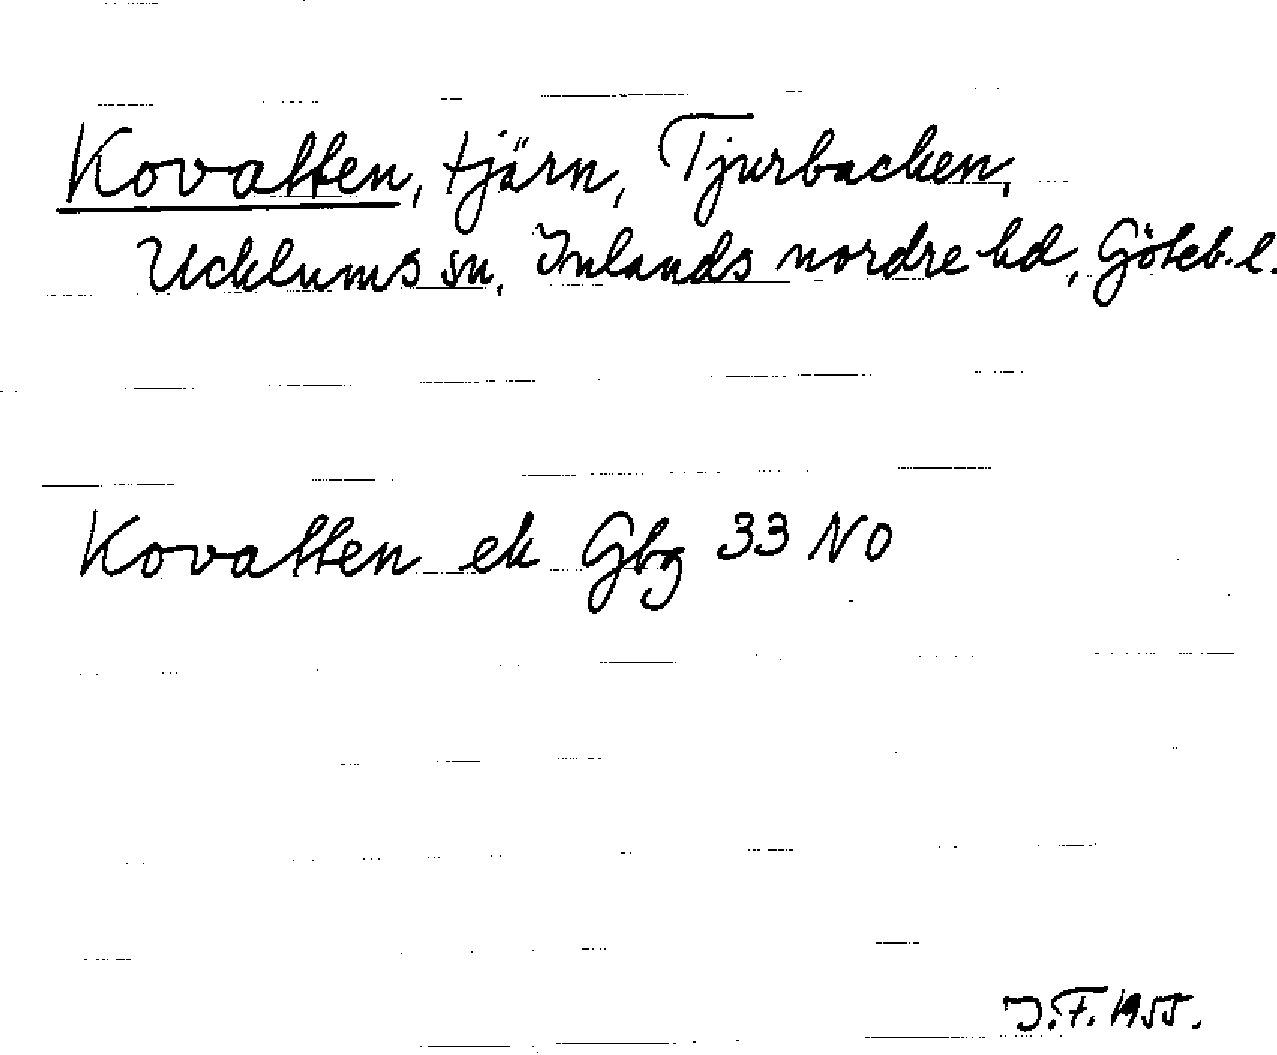 Kovatten, tjärn, Tjurbacken,
Ucklums sn, Inlands nordre hd, Göteb. l.
Kovatten ek Gbg 33 NO
J.F. 1955.